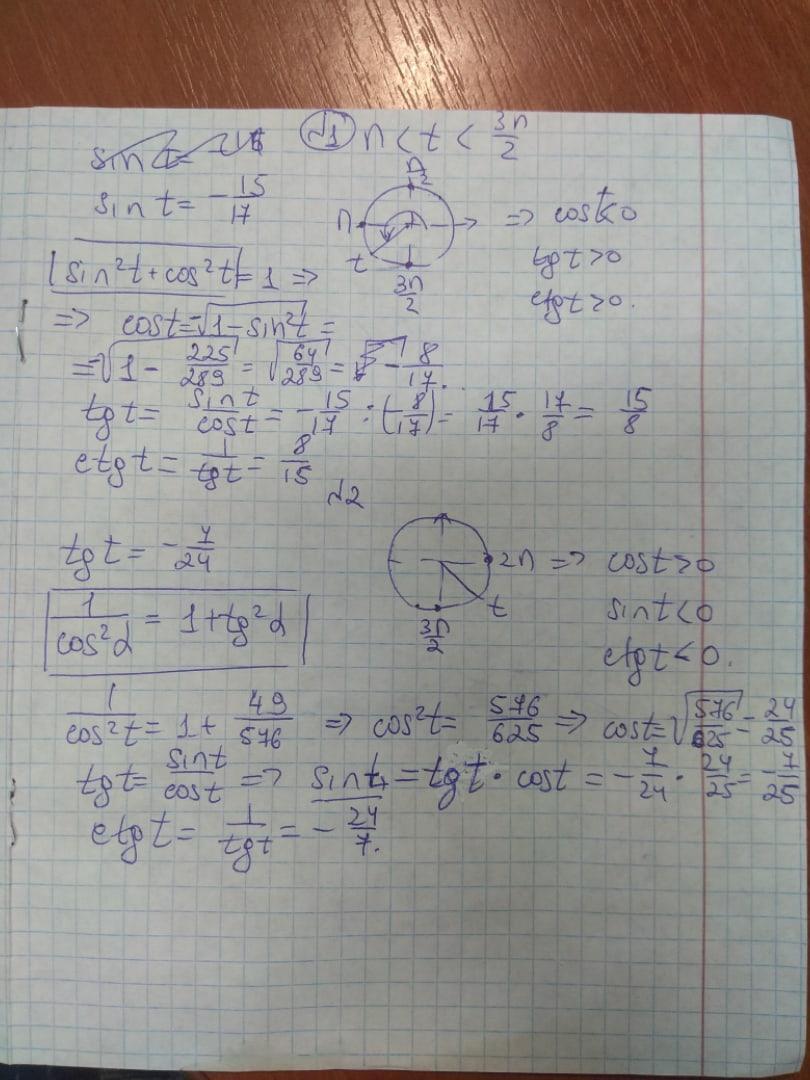 sin t = -15
№1 π < t < 3π/2
sin t = -15/17
π/2
π
t
3π/2
=> cos t < 0
tg t > 0
ctg t > 0.
sin²t + cos²t = 1 =>
=> cos t = -√(1 - sin²t) =
= -√(1 - 225/289) = √(64/289) = -8/17.
tg t = sin t/cos t = -15/17 : (-8/17) = 15/17 · 17/8 = 15/8
ctg t = 1/tg t = 8/15
№2
tg t = -7/24
2π
3π/2
t
=> cos t > 0
sin t < 0
ctg t < 0.
1/cos²α = 1 + tg²α
1/cos²t = 1 + 49/576 => cos²t = 576/625 => cos t = √(576/625) = 24/25
tg t = sin t/cos t => sin t = tg t · cos t = -7/24 · 24/25 = -7/25
ctg t = 1/tg t = -24/7.